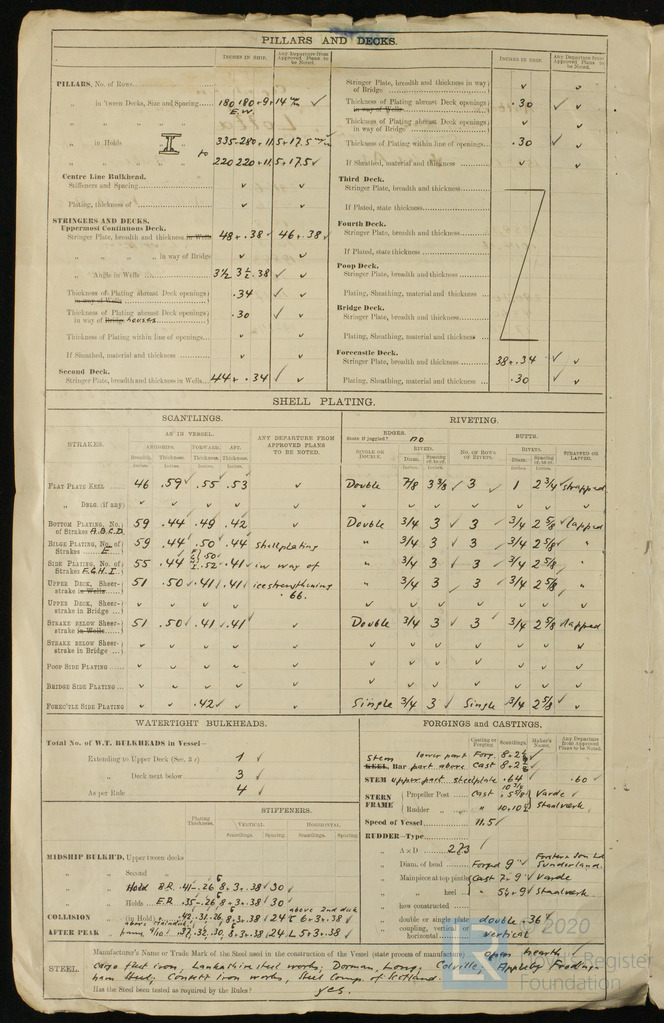 PILLARS AND DECKS.
INCHES IN SHIP.
Any Departure from Approved Plans to be Noted.
PILLARS, No. of Rows
„ in 'tween Decks, Size and Spacing 180 180+9+14 ✓
E.W.
„ in Holds I 335·280+11.5+17.5
to 220 220+11.5+17.5 ✓
Centre Line Bulkhead.
Stiffeners and Spacing ✓ ✓
Plating, thickness of ✓ ✓
STRINGERS AND DECKS.
Uppermost Continuous Deck.
Stringer Plate, breadth and thickness in Wells 48 + .38 ✓ 46 + .38 ✓
„ „ „ „ in way of Bridge ✓ ✓
„ Angle in Wells 3½ 3½ .38 ✓ ✓
Thickness of Plating abreast Deck openings in way of Wells .34 ✓ ✓
Thickness of Plating abreast Deck openings in way of Bridge houses .30 ✓ ✓
Thickness of Plating within line of openings ✓ ✓
If Sheathed, material and thickness ✓ ✓
Second Deck.
Stringer Plate, breadth and thickness in Wells 44 + .34 ✓ ✓
INCHES IN SHIP.
Any Departure from Approved Plans to be Noted.
Stringer Plate, breadth and thickness in way of Bridge ✓ ✓
Thickness of Plating abreast Deck openings in way of Wells .30 ✓ ✓
Thickness of Plating abreast Deck openings in way of Bridge ✓ ✓
Thickness of Plating within line of openings .30 ✓ ✓
If Sheathed, material and thickness ✓ ✓
Third Deck.
Stringer Plate, breadth and thickness
If Plated, state thickness
Fourth Deck.
Stringer Plate, breadth and thickness
If Plated, state thickness
Poop Deck.
Stringer Plate, breadth and thickness
Plating, Sheathing, material and thickness
Bridge Deck.
Stringer Plate, breadth and thickness
Plating, Sheathing, material and thickness
Forecastle Deck.
Stringer Plate, breadth and thickness 38 + .34 ✓ ✓
Plating, Sheathing, material and thickness .30 ✓ ✓
SHELL PLATING.
SCANTLINGS.
RIVETING.
STRAKES.
AS IN VESSEL.
AMIDSHIPS. FORWARD. AFT.
Breadth. Thickness. Thickness. Thickness.
Inches. Inches. Inches. Inches.
ANY DEPARTURE FROM APPROVED PLANS TO BE NOTED.
EDGES.
State if joggled? no
SINGLE OR DOUBLE.
RIVETS.
Diam. Spacing cr. to cr.
BUTTS.
NO. OF ROWS OF RIVETS.
RIVETS.
Diam. Spacing cr. to cr.
STRAPPED OR LAPPED.
FLAT PLATE KEEL 46 .59 ✓ .55 ✓ .53 ✓ Double 7/8 3 3/8 ✓ 3 1 2 3/4 ✓ strapped
„ DBLG. (if any) ✓ ✓ ✓ ✓ ✓
BOTTOM PLATING, No. of Strakes A.B.C.D. 59 .44 ✓ .49 .42 ✓ Double 3/4 3 ✓ 3 ✓ 3/4 2 5/8 ✓ lapped
BILGE PLATING, No. of Strakes E. 59 .44 ✓ .50 ✓ .44 shell plating „ 3/4 3 ✓ 3 3/4 2 5/8 ✓ „
SIDE PLATING, No. of Strakes F.G.H.I. 55 .44 ✓ .50 .52 .41 ✓ in way of „ 3/4 3 ✓ 3 ✓ 3/4 2 5/8 „
UPPER DECK, Sheerstrake in Wells 51 .50 ✓ .41 ✓ .41 ✓ ice strengthening .66. „ 3/4 3 ✓ 3 ✓ 3/4 2 5/8 ✓ „
UPPER DECK, Sheerstrake in Bridge ✓ ✓ ✓ ✓ ✓
STRAKE BELOW Sheerstrake in Wells 51 .50 ✓ .41 ✓ .41 ✓ Double 3/4 3 ✓ 3 ✓ 3/4 2 5/8 lapped
STRAKE BELOW Sheerstrake in Bridge ✓ ✓ ✓ ✓ ✓
POOP SIDE PLATING ✓ ✓ ✓ ✓ ✓
BRIDGE SIDE PLATING ✓ ✓ ✓ ✓ ✓
FOREC'TLE SIDE PLATING .42 ✓ Single 3/4 3 ✓ Single 3/4 2 5/8 ✓
WATERTIGHT BULKHEADS.
Total No. of W.T. BULKHEADS in Vessel—
Extending to Upper Deck 1 ✓
„ Deck next below 3 ✓
As per Rule 4 ✓
Plating Thickness.
STIFFENERS.
VERTICAL. HORIZONTAL.
Scantlings. Spacing. Scantlings. Spacing.
MIDSHIP BULKH'D, Upper tween decks
„ Second „
„ Hold B.R. .41-.26 8+3+.38 30 ✓
„ Holds E.R. .35-.26 8+3+.38 30 ✓
above 2nd deck
COLLISION „ (in Hold) .42 .31 .26 8+3+.38 24 6+3+.38 ✓
AFTER PEAK „ .37 .32 .30 8+3+.38 24 5+3+.38 ✓
FORGINGS and CASTINGS.
Casting or Forging. Scantlings. Maker's Name. Any Departure from Approved Plans to be Noted.
Stem lower part Forg.
KEEL, Bar part above Cast
STEM upper part steelplate .64 ✓ .60 ✓
STERN FRAME
Propeller Post Cast Varde
Rudder „ „ Staalværk
Speed of Vessel 11.5 ✓
RUDDER—Type
„ A x D 273 ✓
„ Diam. of head Forged 9" Sunderland.
„ Mainpiece at top pintle Cast 7+9 ✓ Varde
„ „ heel „ 5¼+9 ✓ Staalværk.
„ how constructed
„ double or single plate double .36 ✓
„ coupling, vertical or horizontal vertical
STEEL.
Manufacturer's Name or Trade Mark of the Steel used in the construction of the Vessel (state process of manufacture) open hearth ✓
Cargo Fleet iron, Lankashire steel works, Dorman, Long, Colville, Appleby Froding-
ham Steel, Consett iron works, Steel Comp. of Scotland.
Has the Steel been tested as required by the Rules? yes.
© 2020
Lloyd's Register
Foundation